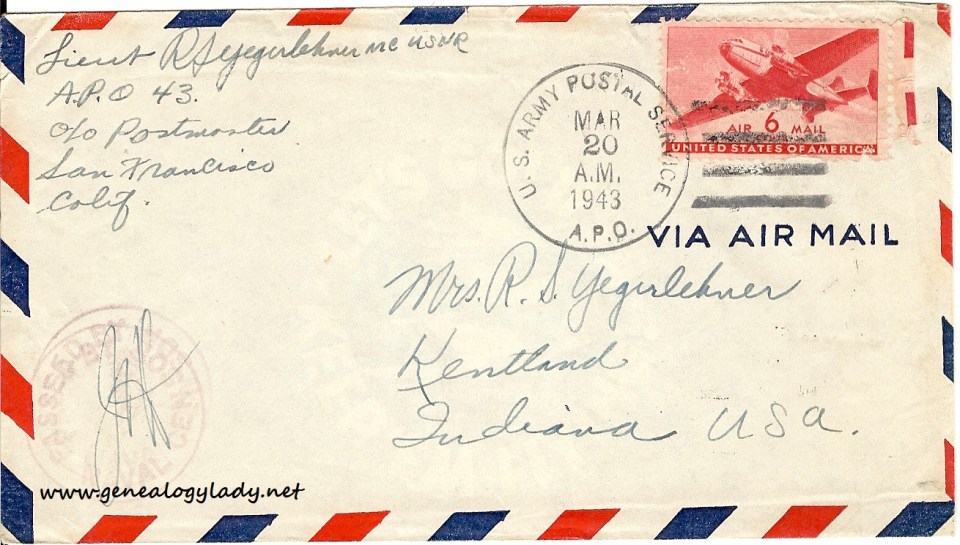 Lieut R S Yegerlehner MC USNR
A.P.O 43.
c/o Postmaster
San Francisco
Calif.
U. S. ARMY POSTAL SERVICE
MAR
20
A.M.
1943
A.P.O.
AIR 6 MAIL
UNITED STATES OF AMERICA
VIA AIR MAIL
Mrs. R. S. Yegerlehner
Kentland
Indiana USA.
PASSED BY
NAVAL
www.genealogylady.net